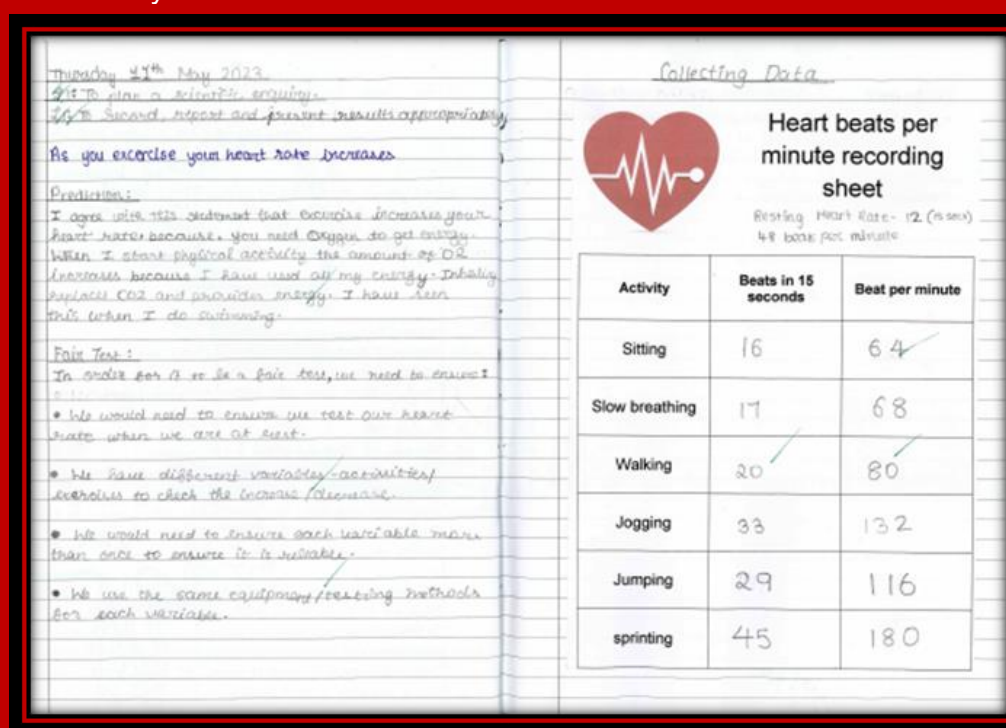 Thursday 11th May 2023
To plan a scientific enquiry.
Record, report and present results appropriately
As you excercise your heart rate increases
Prediction:
I agree with this statement that excercise increases your
heart rate, because, you need Oxygen to get energy.
When I start physical activity the amount of O2
increases because I have used all my energy. Inhaling
replaces CO2 and provides energy. I have seen
this when I do swimming.
Fair Test:
In order for it to be a fair test, we need to ensure:
• We would need to ensure we test our heart
rate when we are at rest.
• We have different variables-activities/
exercises to check the increase/decrease.
• We would need to ensure each variable more
than once to ensure it is reliable.
• We use the same equipment/testing methods
for each variable.
Collecting Data
Heart beats per
minute recording
sheet
Resting Heart Rate - 12 (15 secs)
48 beats per minute
Activity Beats in 15 seconds Beat per minute
Sitting 16 64
Slow breathing 17 68
Walking 20 80
Jogging 33 132
Jumping 29 116
sprinting 45 180